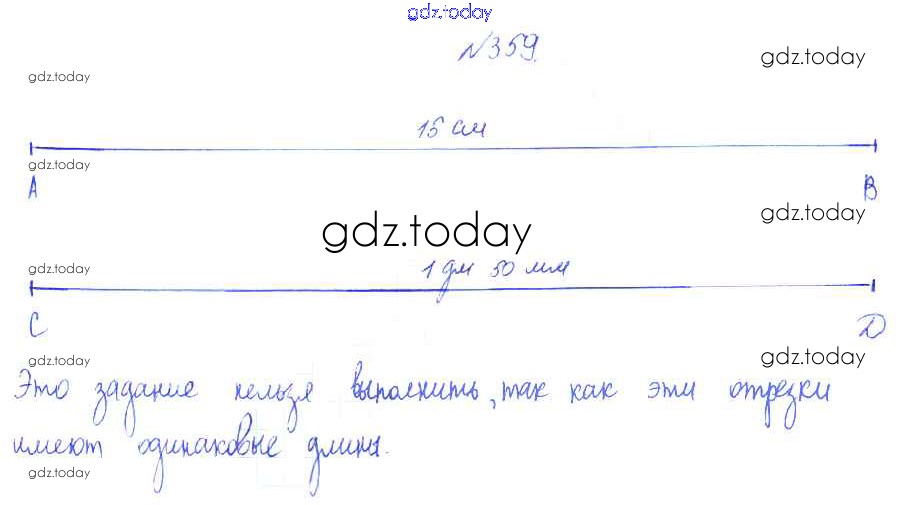 gdz.today
№359.
gdz.today
gdz.today
15 см
gdz.today
A B
gdz.today
gdz.today
gdz.today
1 дм 50 мм
C D
gdz.today
gdz.today
Это задание нельзя выполнить, так как эти отрезки
имеют одинаковые длины.
gdz.today